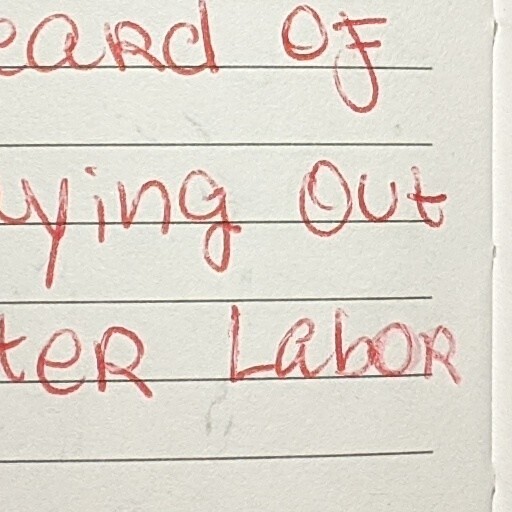 eard of
ying Out
ter Labor